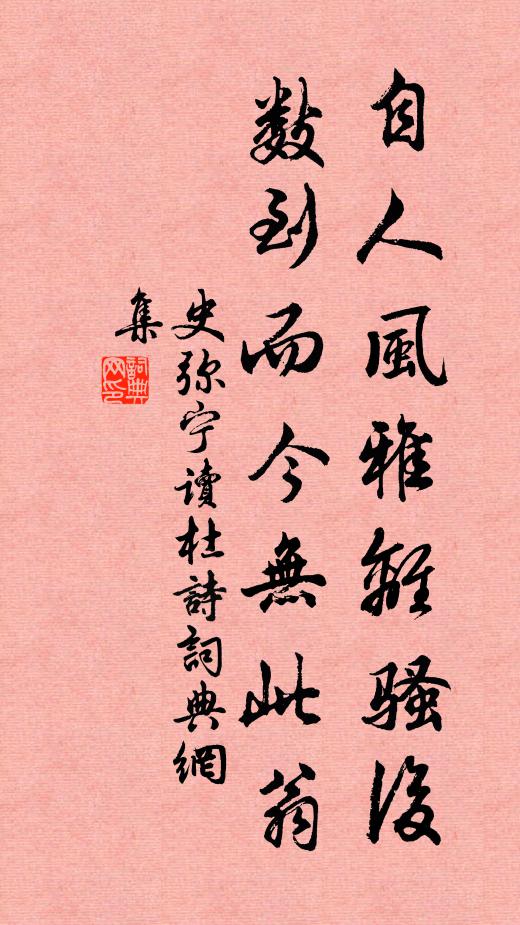 自人風雅離騷後
數到而今無此翁
史弥宁讀杜詩詞典網
集
詞典
网印